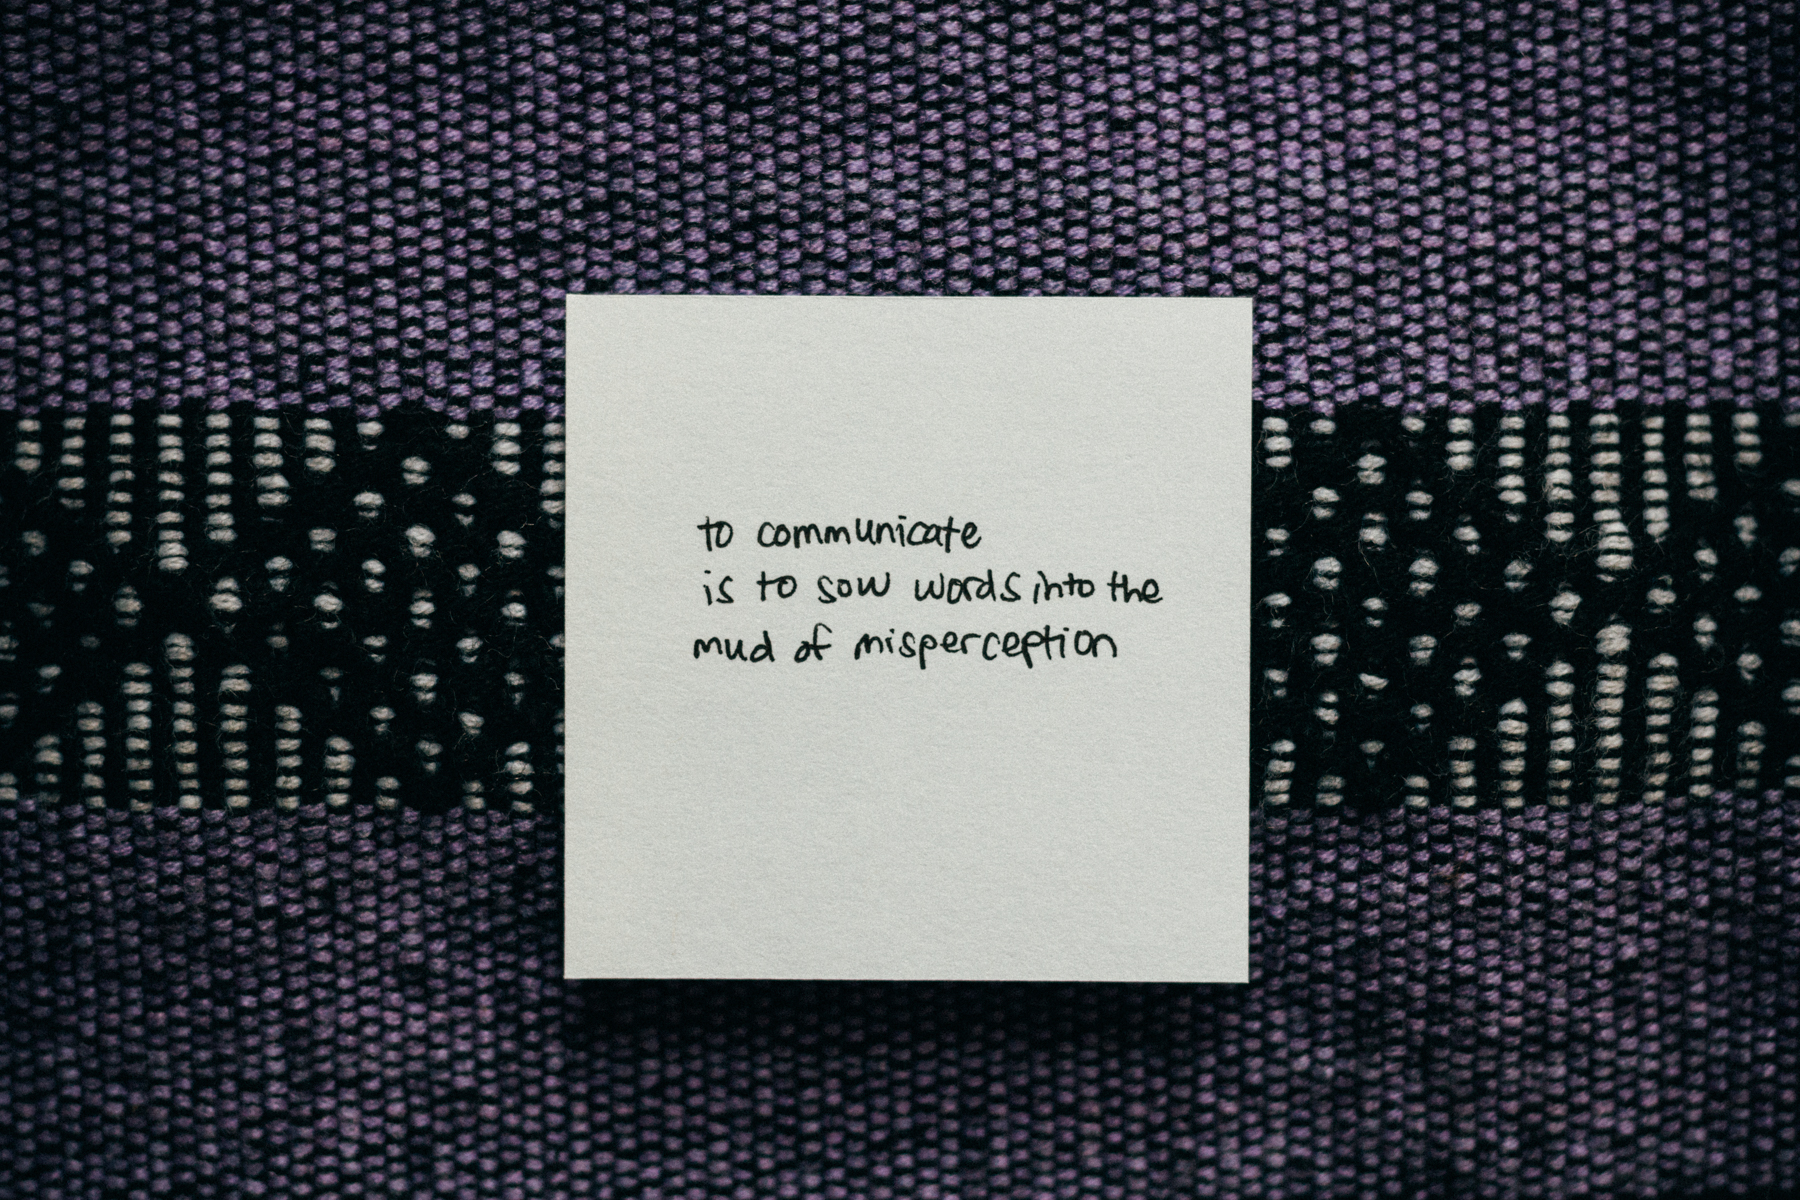 to communicate
is to sow words into the
mud of misperception